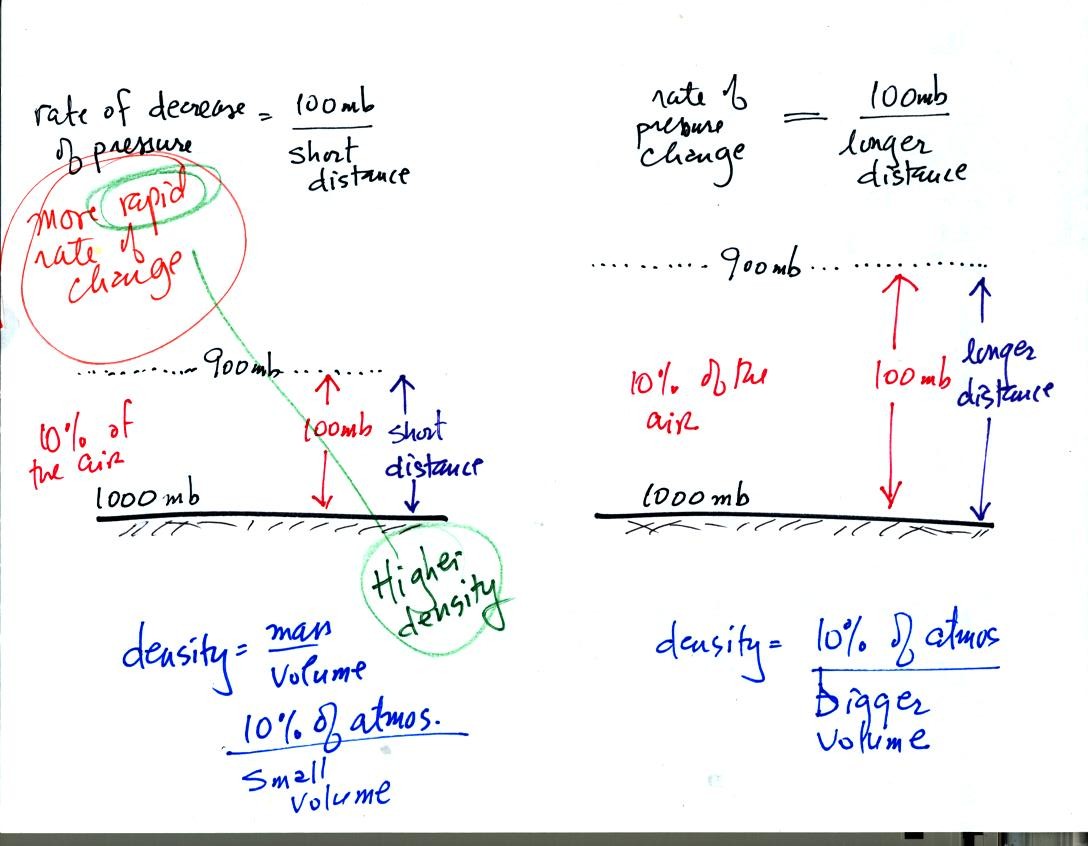 rate of decrease = 100mb
of pressure
short
distance
more rapid
rate of
change
900mb
10% of
the air
100mb
short
distance
1000 mb
Higher
density
density = mass
volume
10% of atmos.
small
volume
rate of
pressure
change
=
100mb
longer
distance
900mb
10% of the
air
100 mb
longer
distance
1000 mb
density = 10% of atmos
Bigger
volume